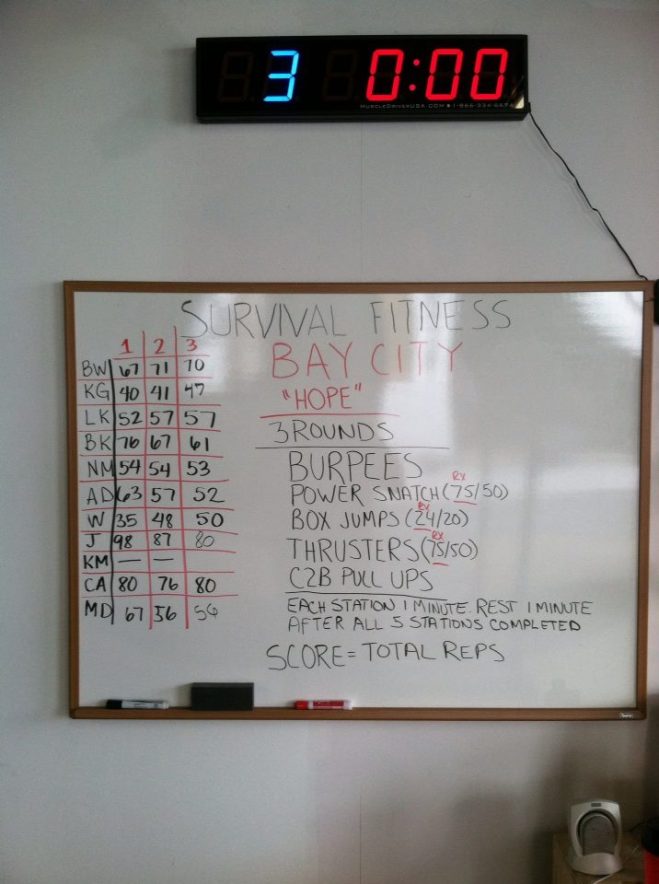 3 0:00
MUSCLEDRIVERUSA.COM 1-866-334-6674
SURVIVAL FITNESS
BAY CITY
"HOPE"
3 ROUNDS
BURPEES
RX
POWER SNATCH (75/50)
RX
BOX JUMPS (24/20)
RX
THRUSTERS (75/50)
C2B PULL UPS
EACH STATION 1 MINUTE. REST 1 MINUTE
AFTER ALL 5 STATIONS COMPLETED
SCORE = TOTAL REPS
1 2 3
BW 67 71 70
KG 40 41 47
LK 52 57 57
BK 76 67 61
NM 54 54 53
AD 63 57 52
W 35 48 50
J 98 87 80
KM — —
CA 80 76 80
MD 67 56 56